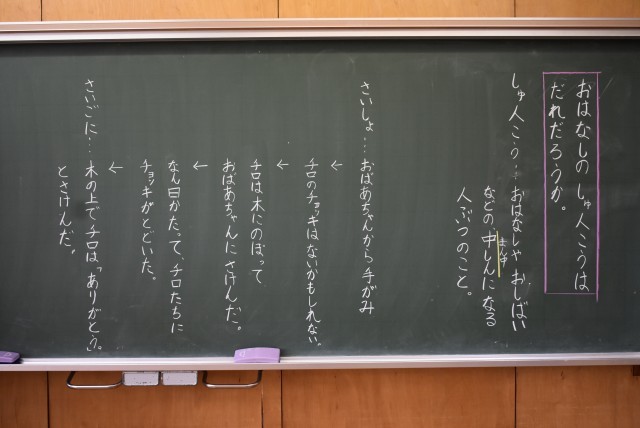 おはなしの しゅ人こうは
だれだろうか。
しゅ人こう…おはなしや おしばい
などの 中しんになる
まん中
人ぶつのこと。
さいしょ…おばあちゃんから手がみ
↓
チロのチョッキはないかもしれない。
↓
チロは木にのぼって
おばあちゃんに さけんだ。
↓
なん日かたって、チロたちに
チョッキがとどいた。
↓
さいごに…木の上で チロは「ありがとう」。
とさけんだ。